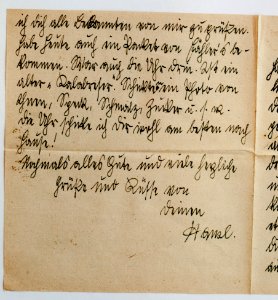 ich dich alle Bekannten von mir zu grüßen.
Habe heute auch ein Packet von be-
kommen. War auch die Uhr drin. Ist ein
alter Kalabreser. Schickt ein Photo von
Speck, Schmalz, Zucker u. s. w.
die Uhr schicke ich dir wohl am besten nach
Hause!
Nochmals alles Gute und viele herzliche
Grüße und Küsse von
deinem